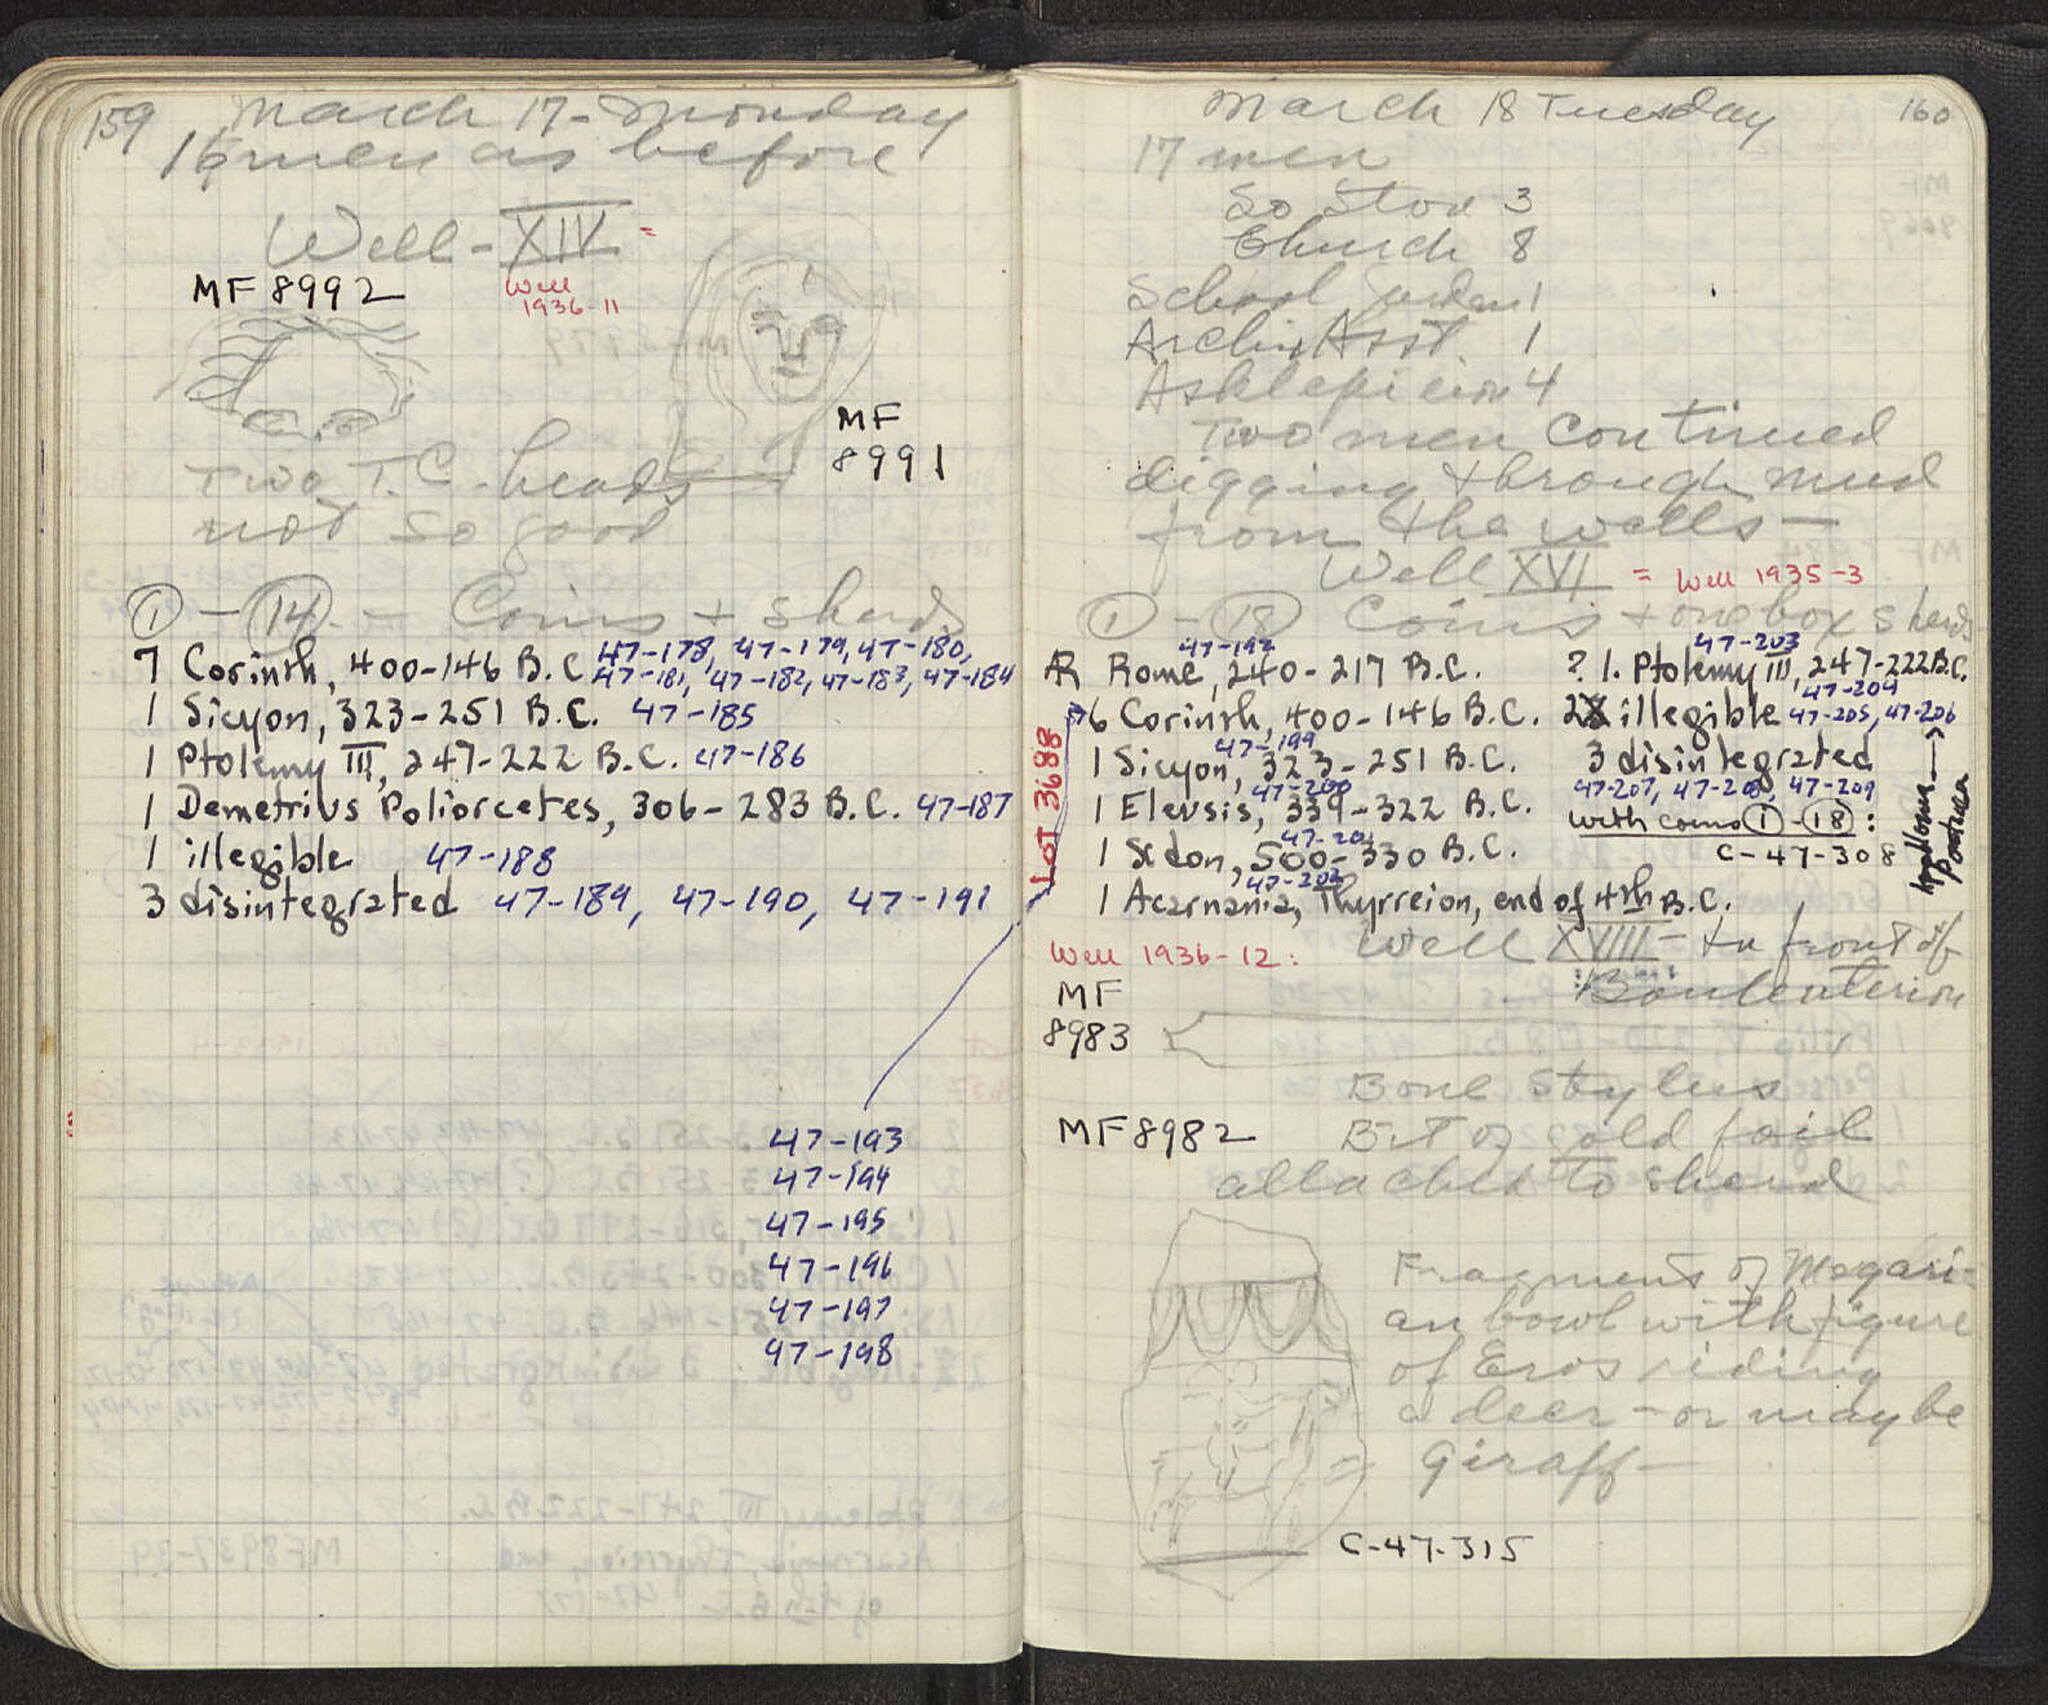 159 March 17 - Monday
16 men as before
Well - XIV =
MF 8992
Well
1936-11
MF
8991
Two T.C. heads
not so good
1 - 14 - Coins + sherds
7 Corinth, 400-146 B.C. 47-178, 47-179, 47-180,
47-181, 47-182, 47-183, 47-184
1 Sicyon, 323-251 B.C. 47-185
1 Ptolemy III, 247-222 B.C. 47-186
1 Demetrius Poliorcetes, 306-283 B.C. 47-187
1 illegible 47-188
3 disintegrated 47-189, 47-190, 47-191
47-193
47-194
47-195
47-196
47-197
47-198
March 18 Tuesday 160
17 men
So Stoa 3
Church 8
School 1
Archi. Asst. 1
Asklepieion 4
Two men continued
digging through mud
from the wells —
Well XVI = Well 1935-3
1 - 18 Coins + one box sherds
47-192
AR Rome, 240-217 B.C.
6 Corinth, 400-146 B.C.
47-199
1 Sicyon, 323-251 B.C.
47-200
1 Eleusis, 339-322 B.C.
47-201
1 Sidon, 500-330 B.C.
47-202
1 Acarnania, Thyrreion, end of 4th B.C.
47-203
? 1. Ptolemy III, 247-222 B.C.
47-204
2 illegible 47-205, 47-206
3 disintegrated
47-207, 47-208, 47-209
with coins 1 - 18:
C-47-308
Lot 3688
Well 1936-12: Well XVIII - in front of
Bouleuterion
MF
8983
Bone Stylus
MF 8982 Bit of gold foil
attached to sherd
Fragment of Megari-
an bowl with figure
of Eros riding
a deer - or maybe
Giraff —
C-47-315